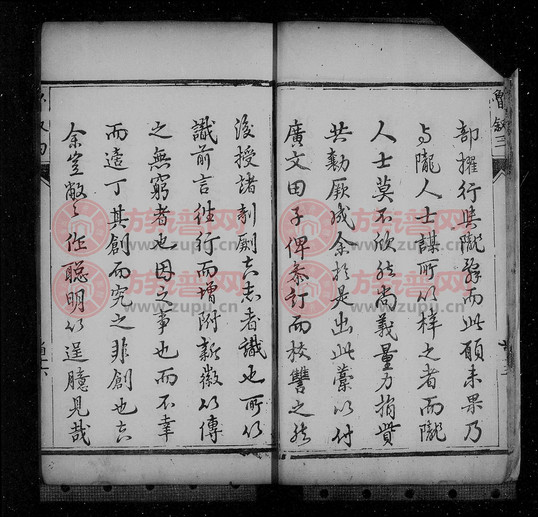 部擢行與隴辭而此願未果乃
与隴人士謀所以梓之者而隴
人士莫不欣然尚義量力捐貲
共勷厥成余於是出此藁以付
廣文田子俾參訂而校讐之然
後授諸剞劂吉志者識也所以
識前言往行而增附新徽以傳
之無窮者也因之事也而不幸
而遠丁其創而究之非創也吉
余豈敢之作聰明以逞臆見哉
族谱网
www.zupu.cn